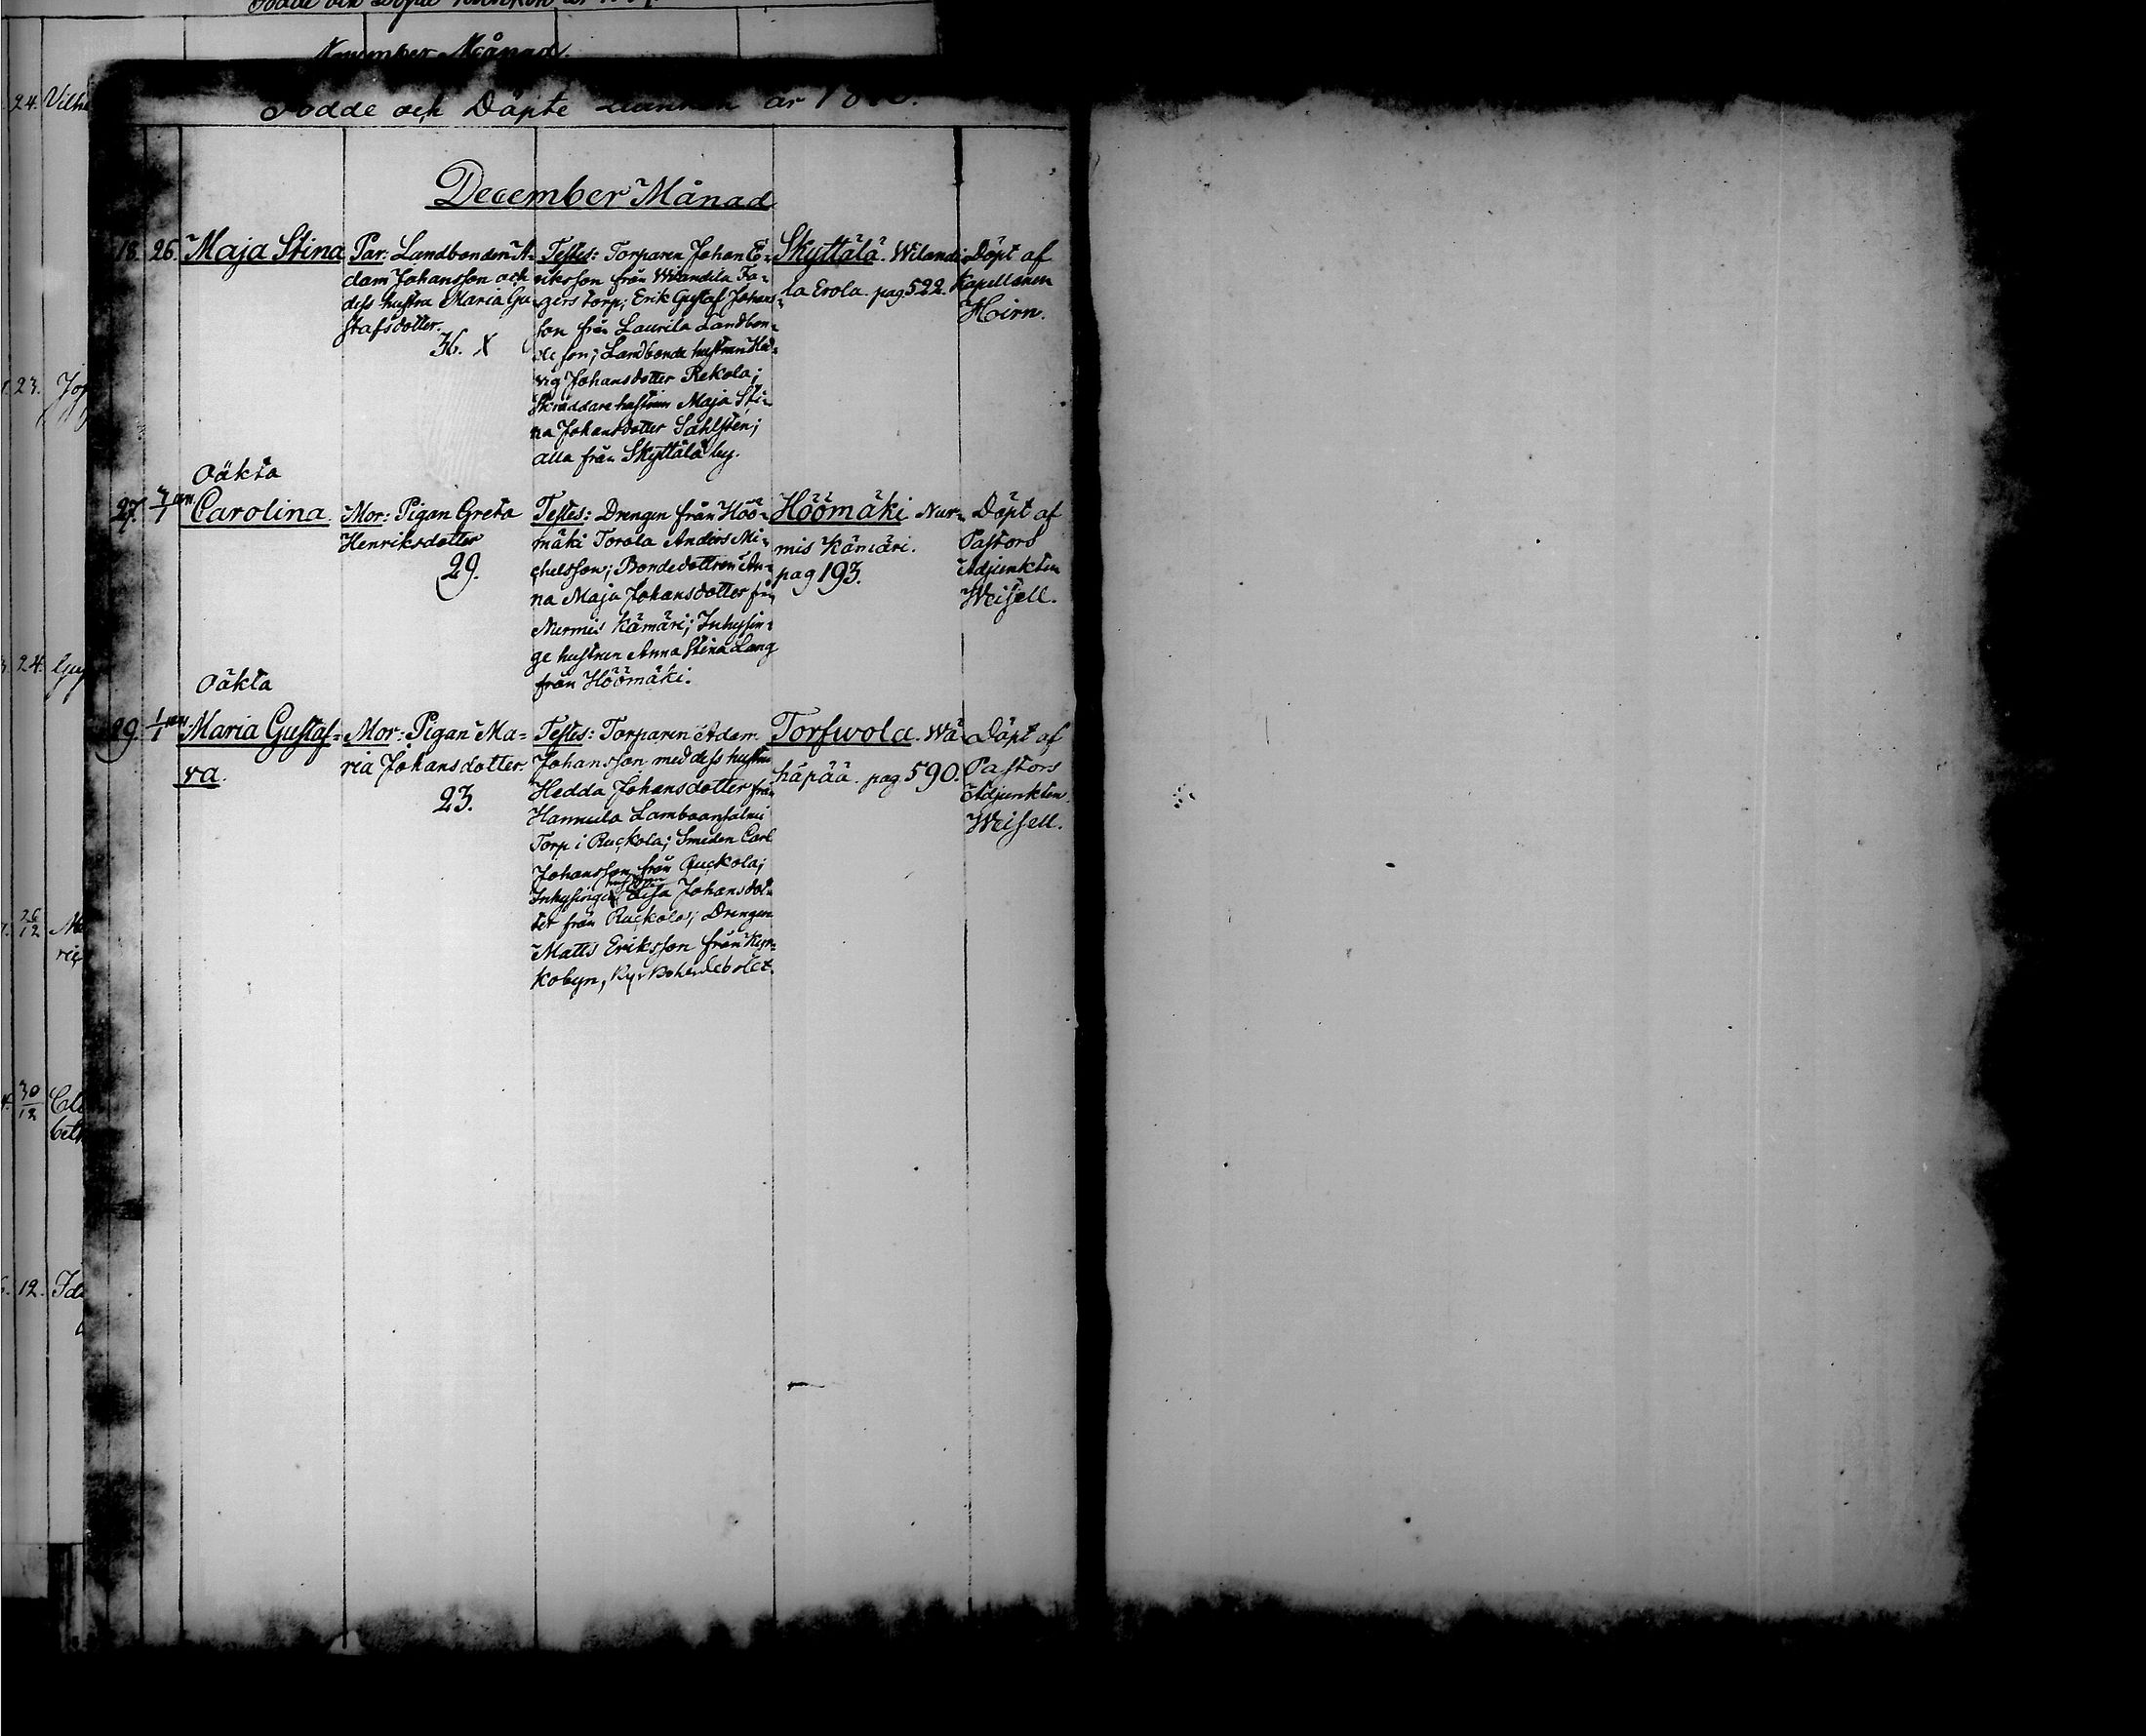 November Månad.
24. Vilhe
23.
24.
26/12
30/12
12. Ida
Födde och Döpte år 18
December Månad
18. 26. Maja Stina
Par: Landbonden A-
dam Johansson och
dess hustru Maria Gu-
stafsdotter.
36. X
Testes: Torparen Johan E-
riksson från Wilandila Fa-
gers torp; Erik Gustaf Johans-
son från Laurila Landbon-
de son; Landbonde hustrun Hed-
vig Johansdotter Rekola;
Skräddare hustrun Maja Sti-
na Johansdotter Sahlsten;
alla från Skyttälä by.
Skyttälä. Wilandi-
la Erola. pag 522.
Döpt af
Kapellanen
Hirn.
Oäkta
27. 7/1 Carolina.
Mor: Pigan Greta
Henriksdotter
29.
Testes: Drengen från Höö-
mäki Torola Anders Mi-
chelsson; Bondedottren An-
na Maja Johansdotter från
Nurmis Kämäri; Inhysin-
ge hustrun Anna Stina Lang
från Höömäki.
Höömäki Nur-
mis Kämäri.
pag 193.
Döpt af
Pastors
Adjunkten
Weisell.
Oäkta
29. 1/1 Maria Gustaf-
va.
Mor: Pigan Ma-
ria Johansdotter.
23.
Testes: Torparen Adam
Johansson med dess hustru
Hedda Johansdotter från
Hannula
Torp i Ruckola; Smeden Carl
Johansson från Ruckola;
hustrun
Inhysinge Lisa Johansdot-
ter från Ruckola; Drengen
Matts Eriksson från Kyr-
kobyn,
Torfwola. Wä-
häpää. pag. 590.
Döpt af
Pastors
Adjunkten
Weisell.